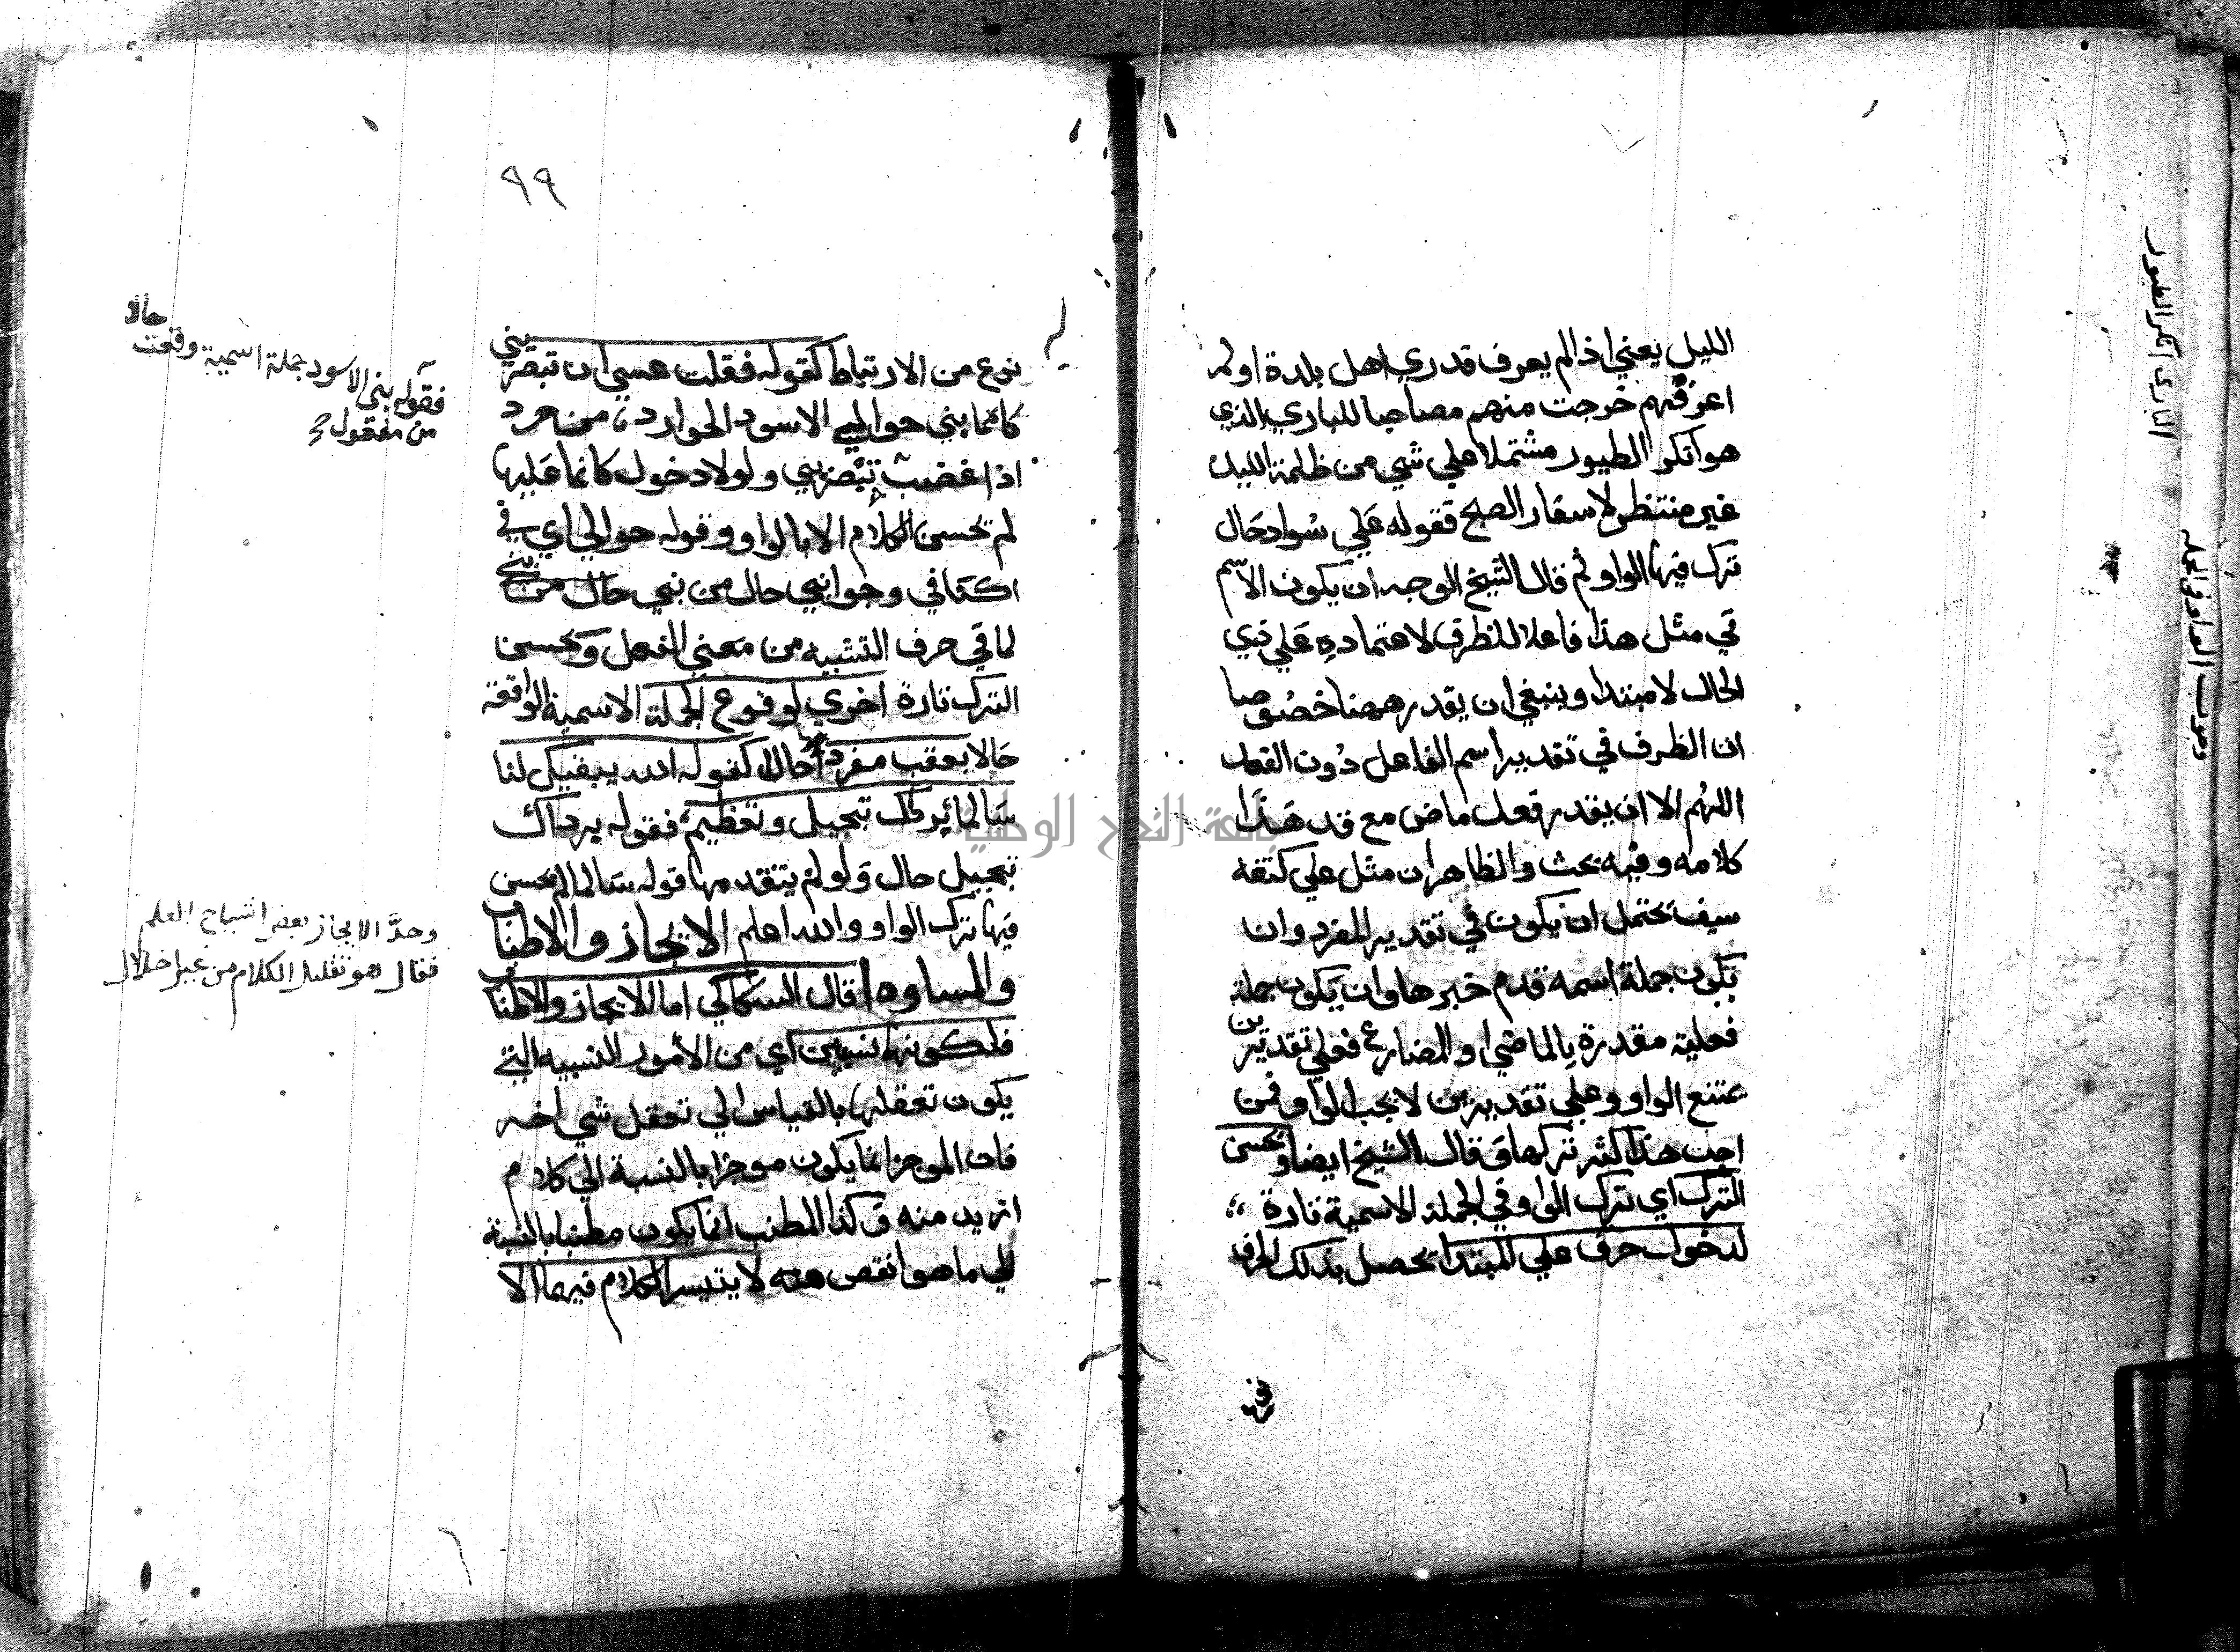 الليل يعني اذا لم يعرف قدري اهل بلدة او لم
اعرفهم خرجت منهم مصاحبا للبازي الذي
هو ابكر الطيور مشتملا علي شي من ظلمة الليل
غير منتظر لاسفار الصبح فقوله علي سواد حال
ترك فيها الواو ثم قال الشيخ الوجه ان يكون الاسم
في مثل هذا فاعلا للظرف لاعتماده علي ذي
الحال لا مبتدا وينبغي ان يقدر ههنا خصوصا
ان الظرف في تقدير اسم الفاعل دون الفعل
اللهم الا ان يقدر فعل ماض مع قد هذا
كلامه وفيه بحث والظاهر ان مثل علي كتفه
سيف يحتمل ان يكون في تقدير المفرد وان
يكون جملة اسمه قدم خبرها وان يكون جملة
فعلية مقدرة بالماضي او المضارع فعلي تقديرين
يمتنع الواو وعلي تقديرين لا يجب الواو فمن
اجل هذا كثر تركها وقال الشيخ ايضا ويحسن
الترك اي ترك الواو في الجملة الاسمية تارة
لدخول حرف علي المبتدا يحصل بذلك الحرف
البازي ابكر الطيور
وجوب الواو في الجملة
٩٩
نوع من الارتباط كقوله فقلت عسي ان تبصريني
كانما بني حوالي الاسود الحوارد من حرد
اذا غضب تبصريني ولولا دخول كانما عليها
لم يحسن الكلام الا بالواو وقوله حوالي اي في
اكنافي وجوانبي حال من بني حال من بني
لما في حرف التشبيه من معني الفعل ويحسن
الترك تارة اخري لوقوع الجملة الاسمية الواقعة
حالا بعقب مفرد حال كقوله الله يبقيك لنا
سالما برداك تبجيل وتعظيم فقوله برداك
تبجيل حال ولو لم يتقدمها قوله سالما لم يحسن
فيها ترك الواو والله اعلم الايجاز والاطناب
والمساواه قال السكاكي اما الايجاز والاطناب
فلكونهما نسبيين اي من الأمور النسبيه التي
يكون تعقلها بالقياس الي تعقل شي اخر
فان الموجز انما يكون موجزا بالنسبة الي كلام
ازيد منه وكذا المطنب انما يكون مطنبا بالنسبة
الي ما هو انقص منه لا يتيسر الكلام فيهما الا
فقوله بني الاسود جملة اسمية وقعت حالا
من مفعول
وحدَّ الايجاز بعض اشياخ العلم
فقال هو تقليل الكلام من غير اخلال